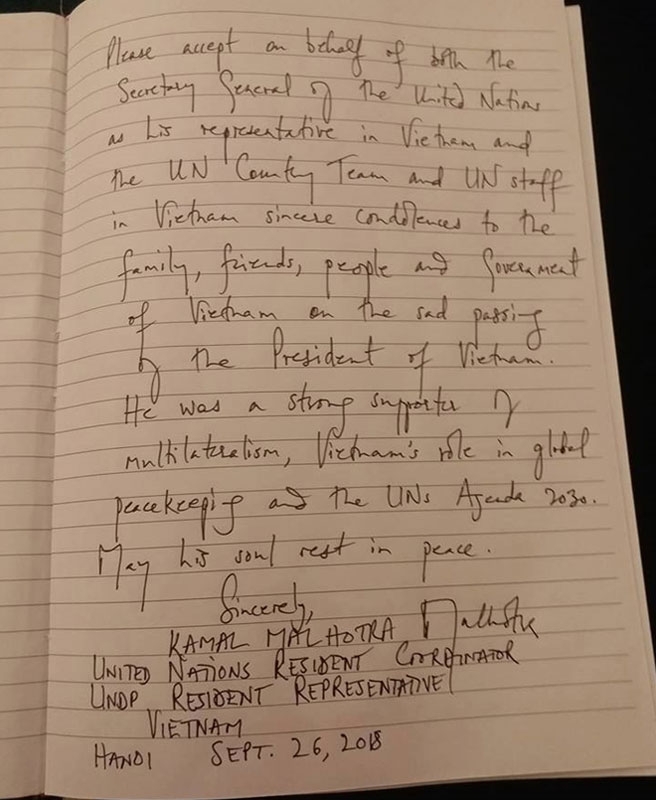 Please accept on behalf of both the
Secretary General of the United Nations
as his representative in Vietnam and
the UN Country Team and UN staff
in Vietnam sincere condolences to the
family, friends, people and Government
of Vietnam on the sad passing
of the President of Vietnam.
He was a strong supporter of
multilateralism, Vietnam's role in global
peacekeeping and the UNs Agenda 2030.
May his soul rest in peace.
Sincerely,
KAMAL MALHOTRA Malhotra
UNITED NATIONS RESIDENT COORDINATOR
UNDP RESIDENT REPRESENTATIVE
VIETNAM
HANOI SEPT. 26, 2018